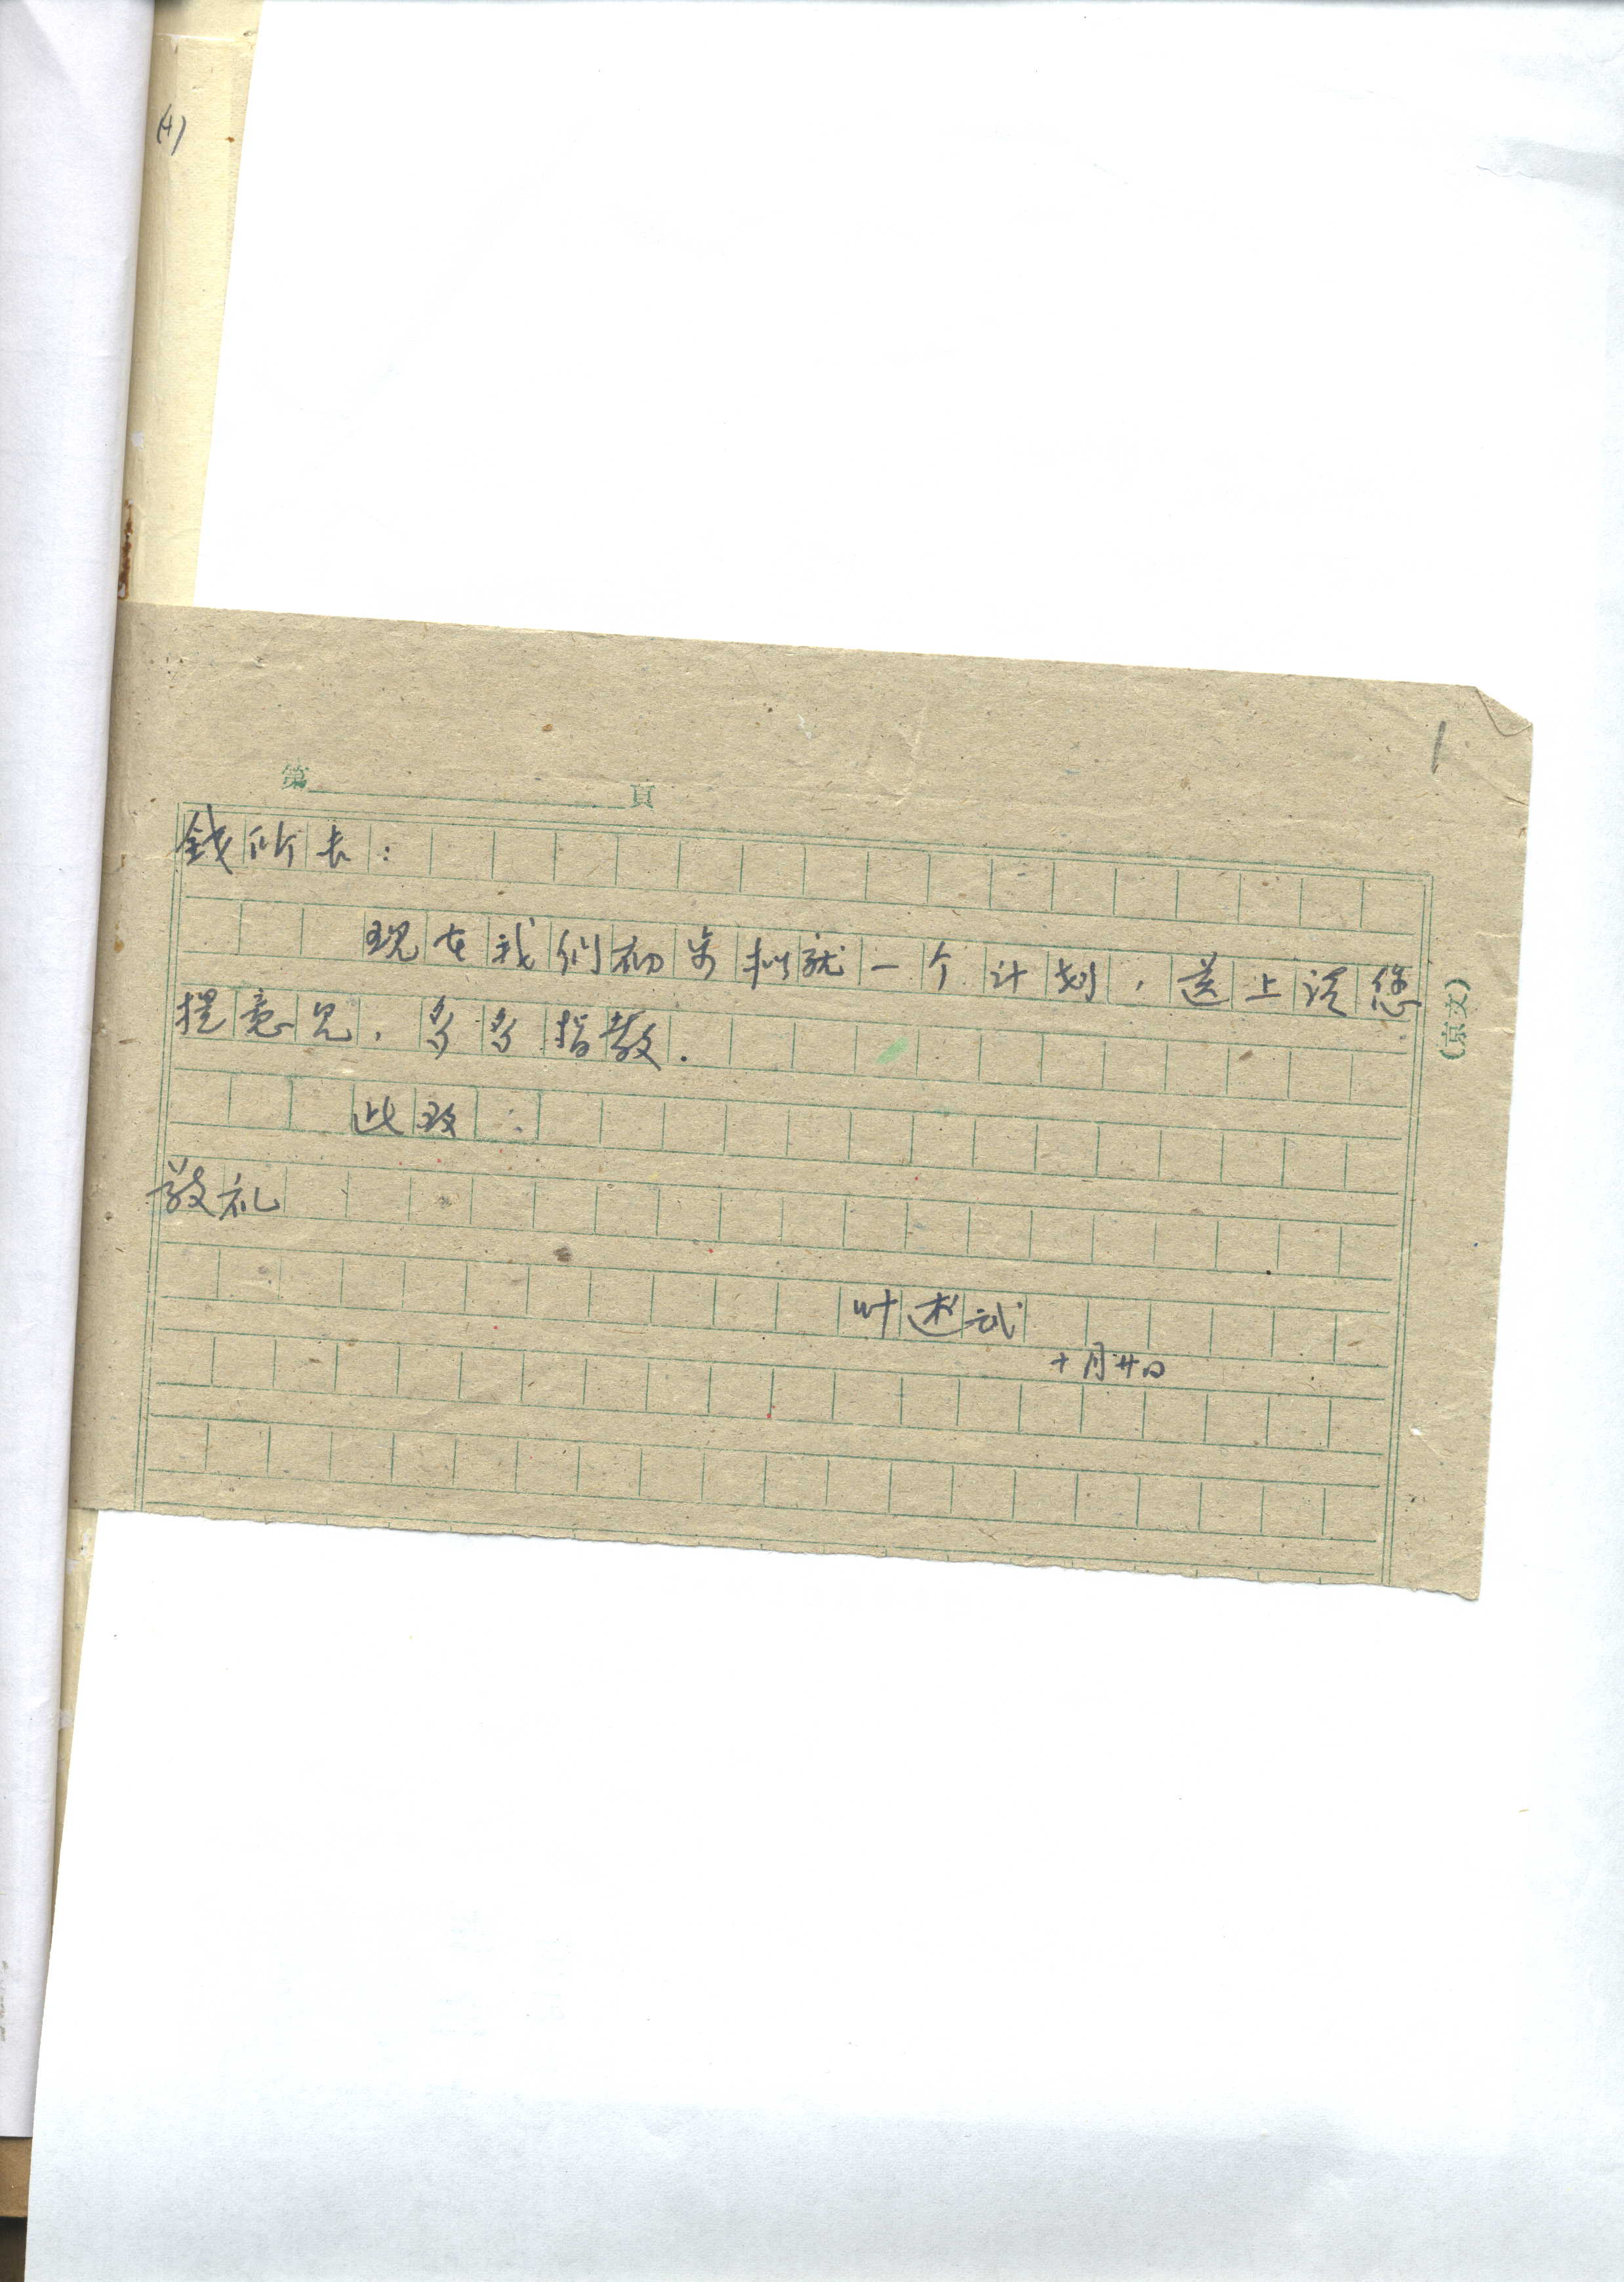 (4)
1
第 頁
钱所长:
现在我们初步拟就一个计划,送上请您
提意见,多多指教.
此致:
敬礼
叶述武
十月廿日
(京文)